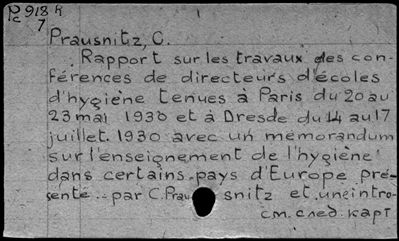 Pc 918 K
7
Prausnitz, C.
Rapport sur les travaux des con-
férences de directeurs d'écoles
d'hygiène tenues à Paris du 20 au
23 mai 1930 et à Dresde du 14 au 17
juillet 1930 avec un memorandum
sur l'enseignement de l'hygiène
dans certains pays d'Europe pré-
senté .. par C. Prau snitz et une intro-
см. след. карт